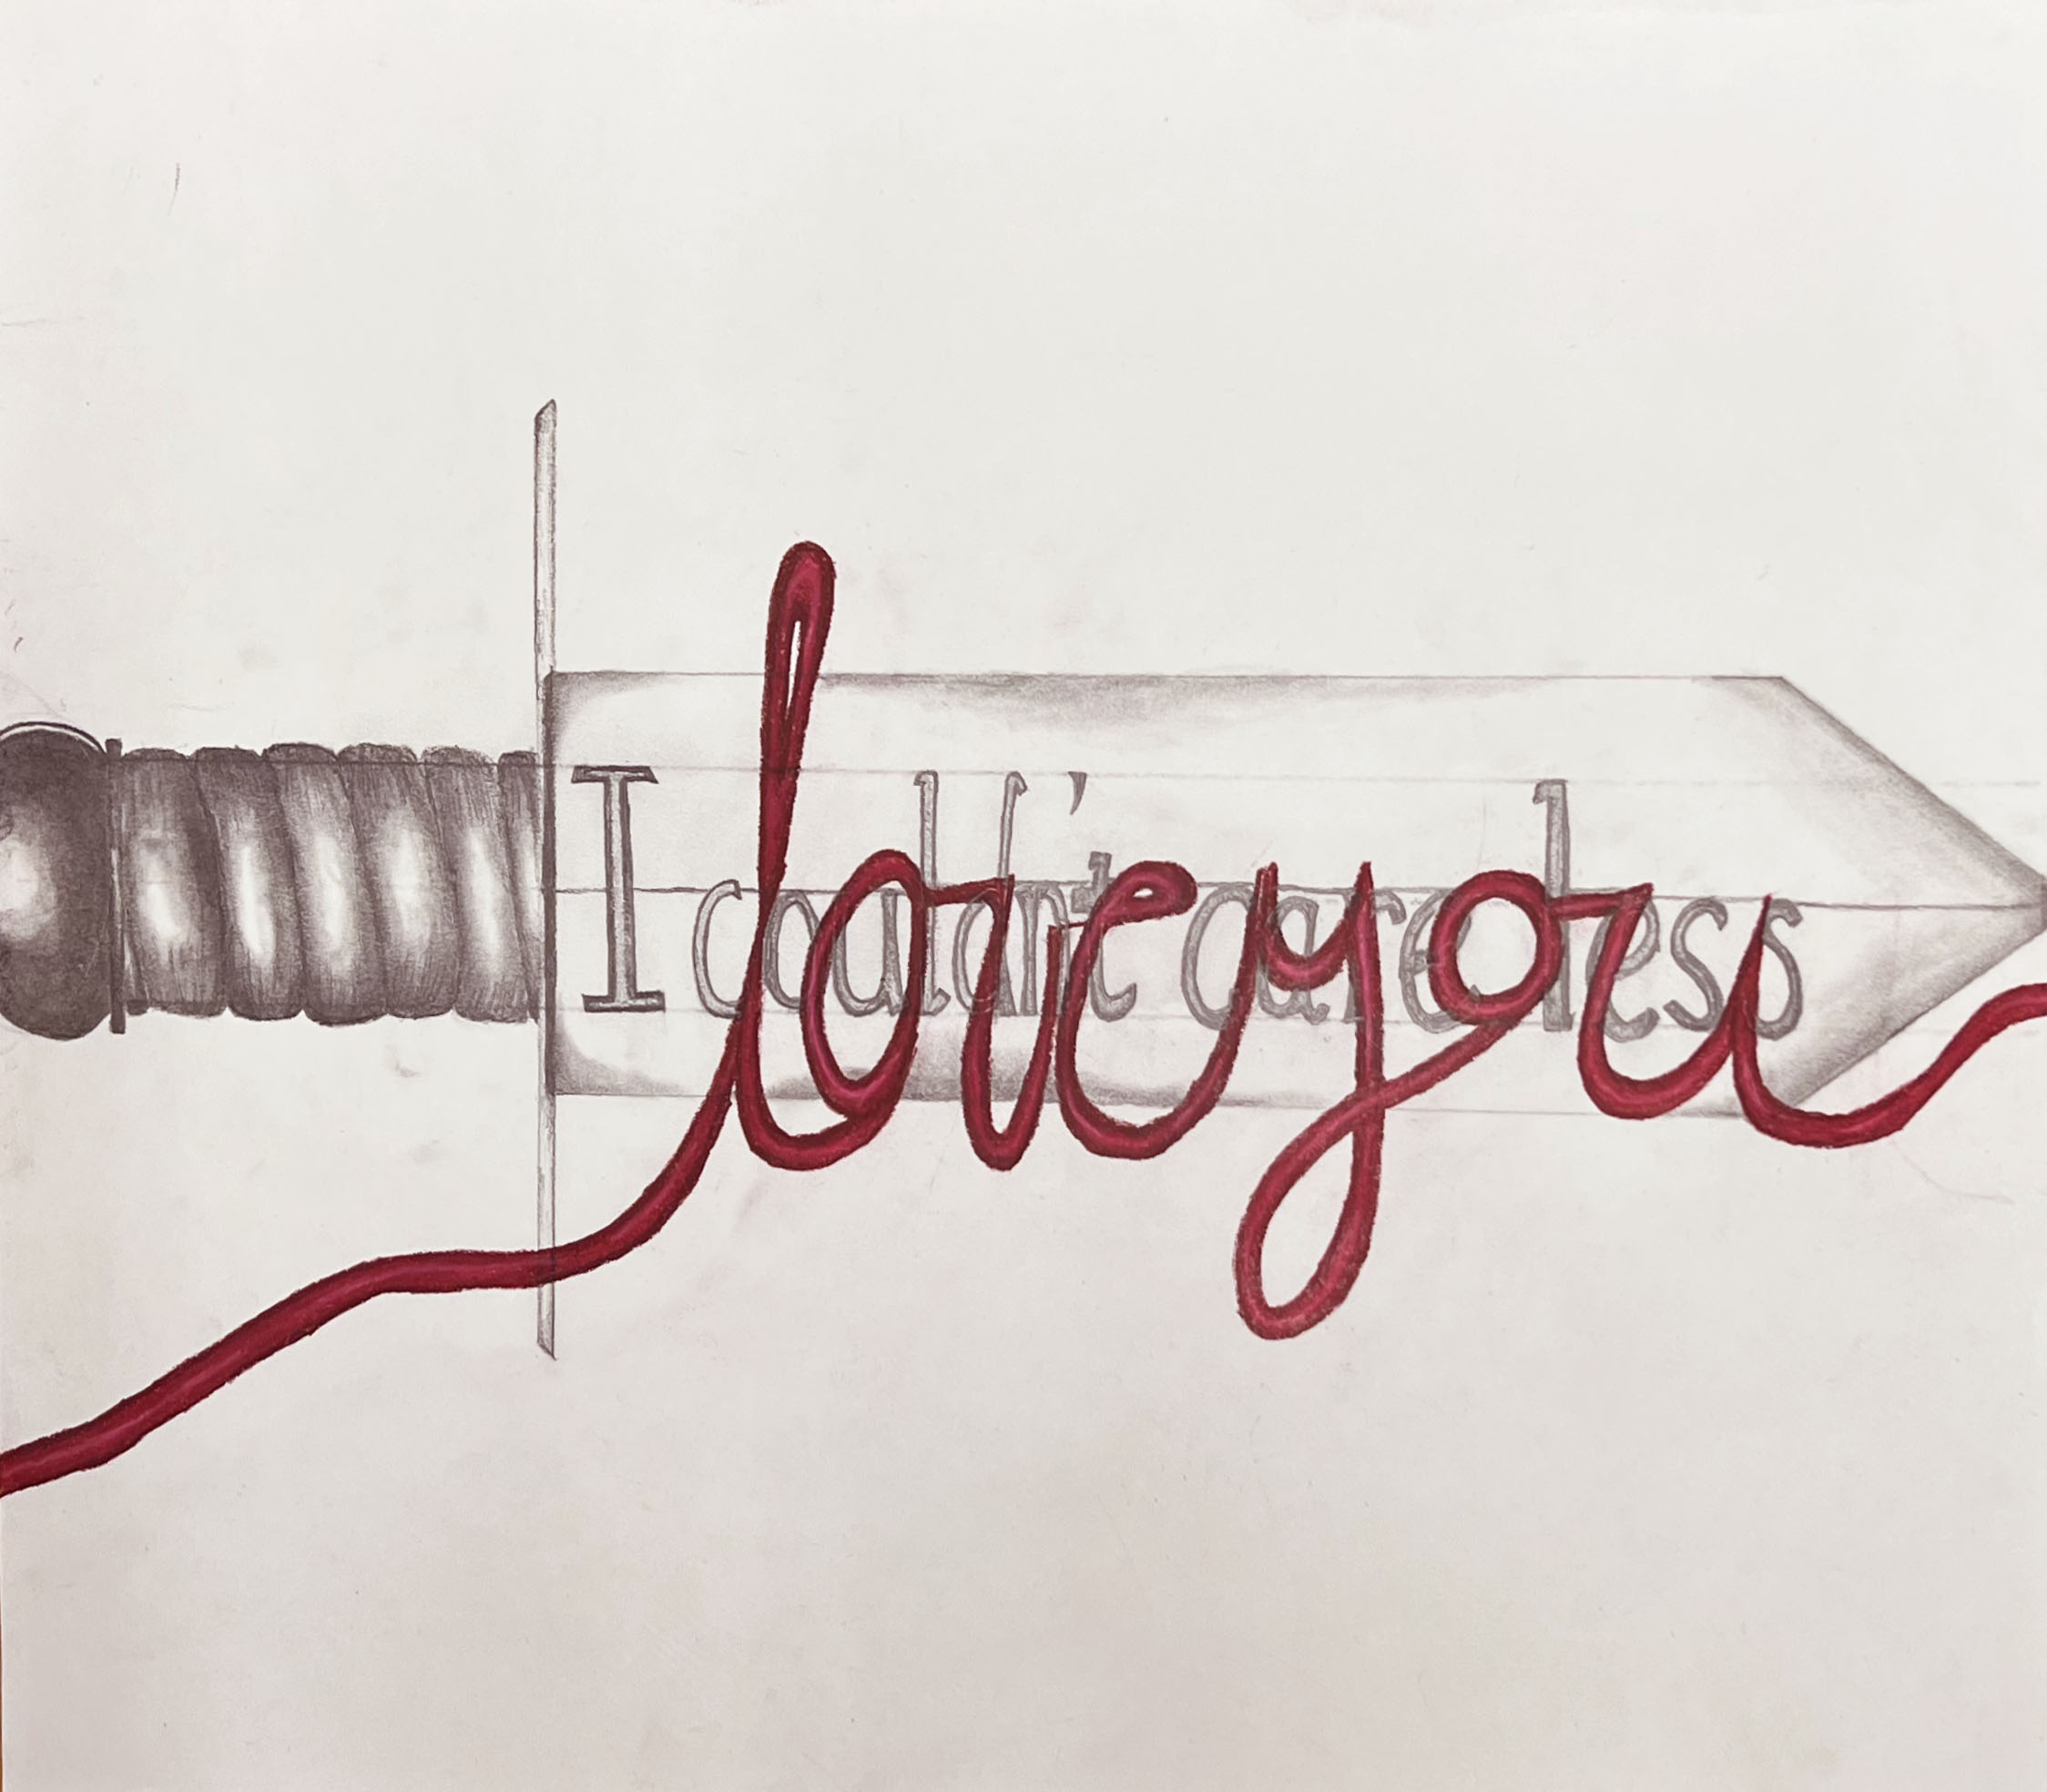 I couldn't care less
love you